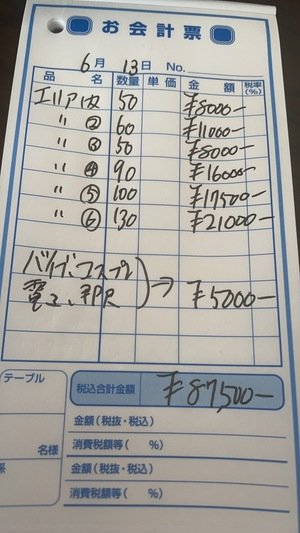 お会計票
6月 13日 No.
品 名 数量 単価 金 額 税率(%)
エリア 50 ¥8000-
〃 ② 60 ¥11000-
〃 ③ 50 ¥8000-
〃 ④ 90 ¥16000-
〃 ⑤ 100 ¥17500-
〃 ⑥ 130 ¥21000-
バイブ、コスプレ
電マ、 → ¥5000-
テーブル
税込合計金額 ¥87,500-
金額(税抜・税込)
名様 消費税額等( %)
金額(税抜・税込)
係 消費税額等( %)